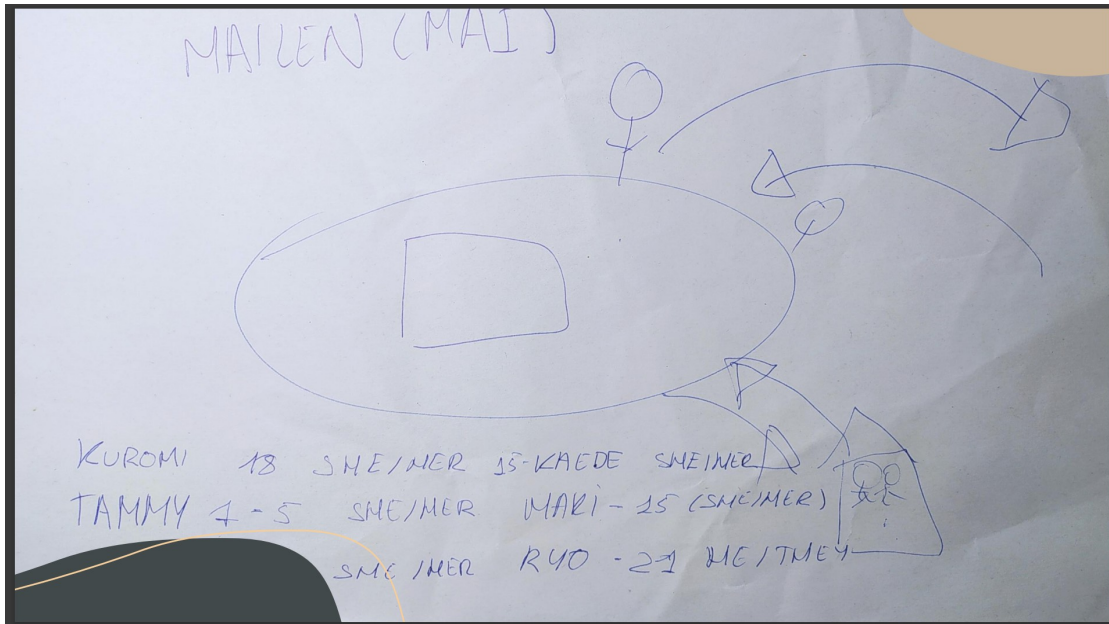 MAILEN (MAI)
KUROMI 18 SHE/HER 15-KAEDE SHE/HER
TAMMY 7-5 SHE/HER MAKI-15 (SHE/HER)
SHE/HER RYO-21 HE/THEY